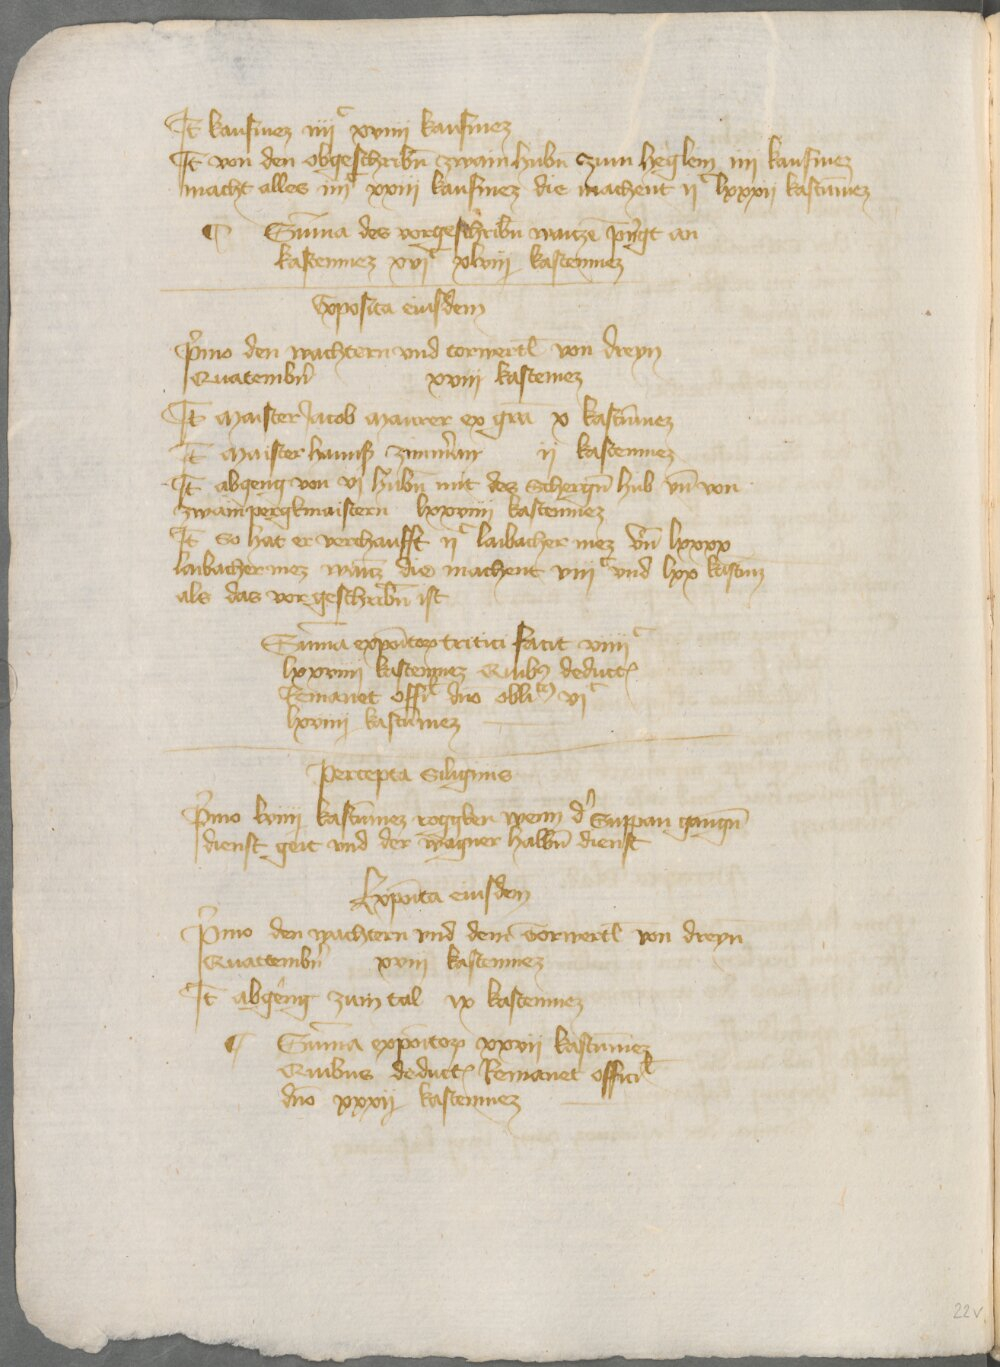 It kaufmez iiijᶜ xviiij kaufmez
It von den obgeschribn̄ zwain hubn̄ zum heglein iiij kaufmez
macht alles iiijᶜ xxiij kaufmez die machent ijᶜ lxxxij kastūmez
¶ Sum̄a des vorgeschribn̄ waicze pringt an
kastenmez xvjᶜ xlviij kastenmez
Exposita eiusdem
Pͥmo den wachtern vnd torwertl von dreyn
Quatembn̄ xviij kastemez
It Maister Jacob Maurer ex gr̄a x kastūmez
It Maister hanns zimmͤrm ij kastenmez
It abgeng von vj hubn̄ mit des Schergn̄ hub vn̄ von
zwain pergkmaistern lxxviiij kastenmez
It So hat er verchaufft ijᶜ laibacher mez vn̄ lxxxx
laibacher mez waicz die machent viijᶜ vnd lxx kastmz
als das vorgeschribn̄ ist
Sum̄a expoītorꝝ tritici facit viiijᶜ
lxxviiij kastenmez Quibꝰ deductꝭ
Remanet offīc dn̄o obliᵗꝰ vjᶜ
lxviiij kastūmez
Percepta Siliginis
Pͥmo lviiij kastūmez roggken wenn dͬ Suppan ganczn̄
dienst geit vnd der wagner halbn̄ dienst
Expoīta eiusdem
Pͥmo den wachtern vnd dem Torwertl von dreyn̄
Quattembn̄ xviij kastenmez
It abgeng zum tal ix kastenmez
¶ Sum̄a expoītorꝝ xxvij kastūmez
Quibus deductꝭ Remanet officiͣl
dn̄o xxxij kastenmez
22v